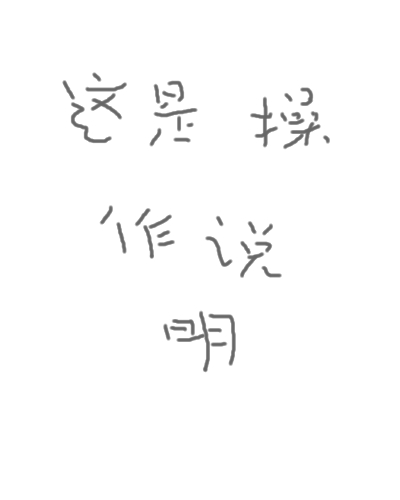 这是 操
作说
明